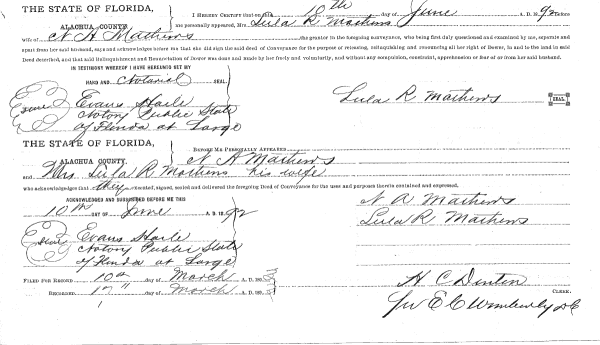 THE STATE OF FLORIDA,
ALACHUA COUNTY.
I HEREBY CERTIFY that on this 10th day of June A. D. 1892 before
me personally appeared, Mrs. Lula R Mathews
wife of N A Mathews the grantor in the foregoing conveyance, who being first duly questioned and examined by me, separate and
apart from her said husband, says and acknowledges before me that she did sign the said deed of Conveyance for the purpose of releasing, relinquishing and renouncing all her right of Dower, in and to the land in said
Deed described, and that said Relinquishment and Renunciation of Dower was done and made by her freely and voluntarily, and without any compulsion, constraint, apprehension or fear of or from her said husband.
IN TESTIMONY WHEREOF I HAVE HEREUNTO SET MY
HAND AND Notarial SEAL
Evans Haile
Notary Public State
of Florida at Large
Lula R Mathews SEAL.
THE STATE OF FLORIDA,
ALACHUA COUNTY.
BEFORE ME PERSONALLY APPEARED N A Mathews
and Mrs. Lula R Mathews his wife
who acknowledges that they executed, signed, sealed and delivered the foregoing Deed of Conveyance for the uses and purposes therein contained and expressed.
ACKNOWLEDGED AND SUBSCRIBED BEFORE ME THIS
10th DAY OF June A. D. 1892
N A Mathews
Lula R Mathews
Evans Haile
Notary Public State
of Florida at Large
FILED FOR RECORD 10th day of March A. D. 189
RECORDED 17" day of March A. D. 189
H C Denton
CLERK.